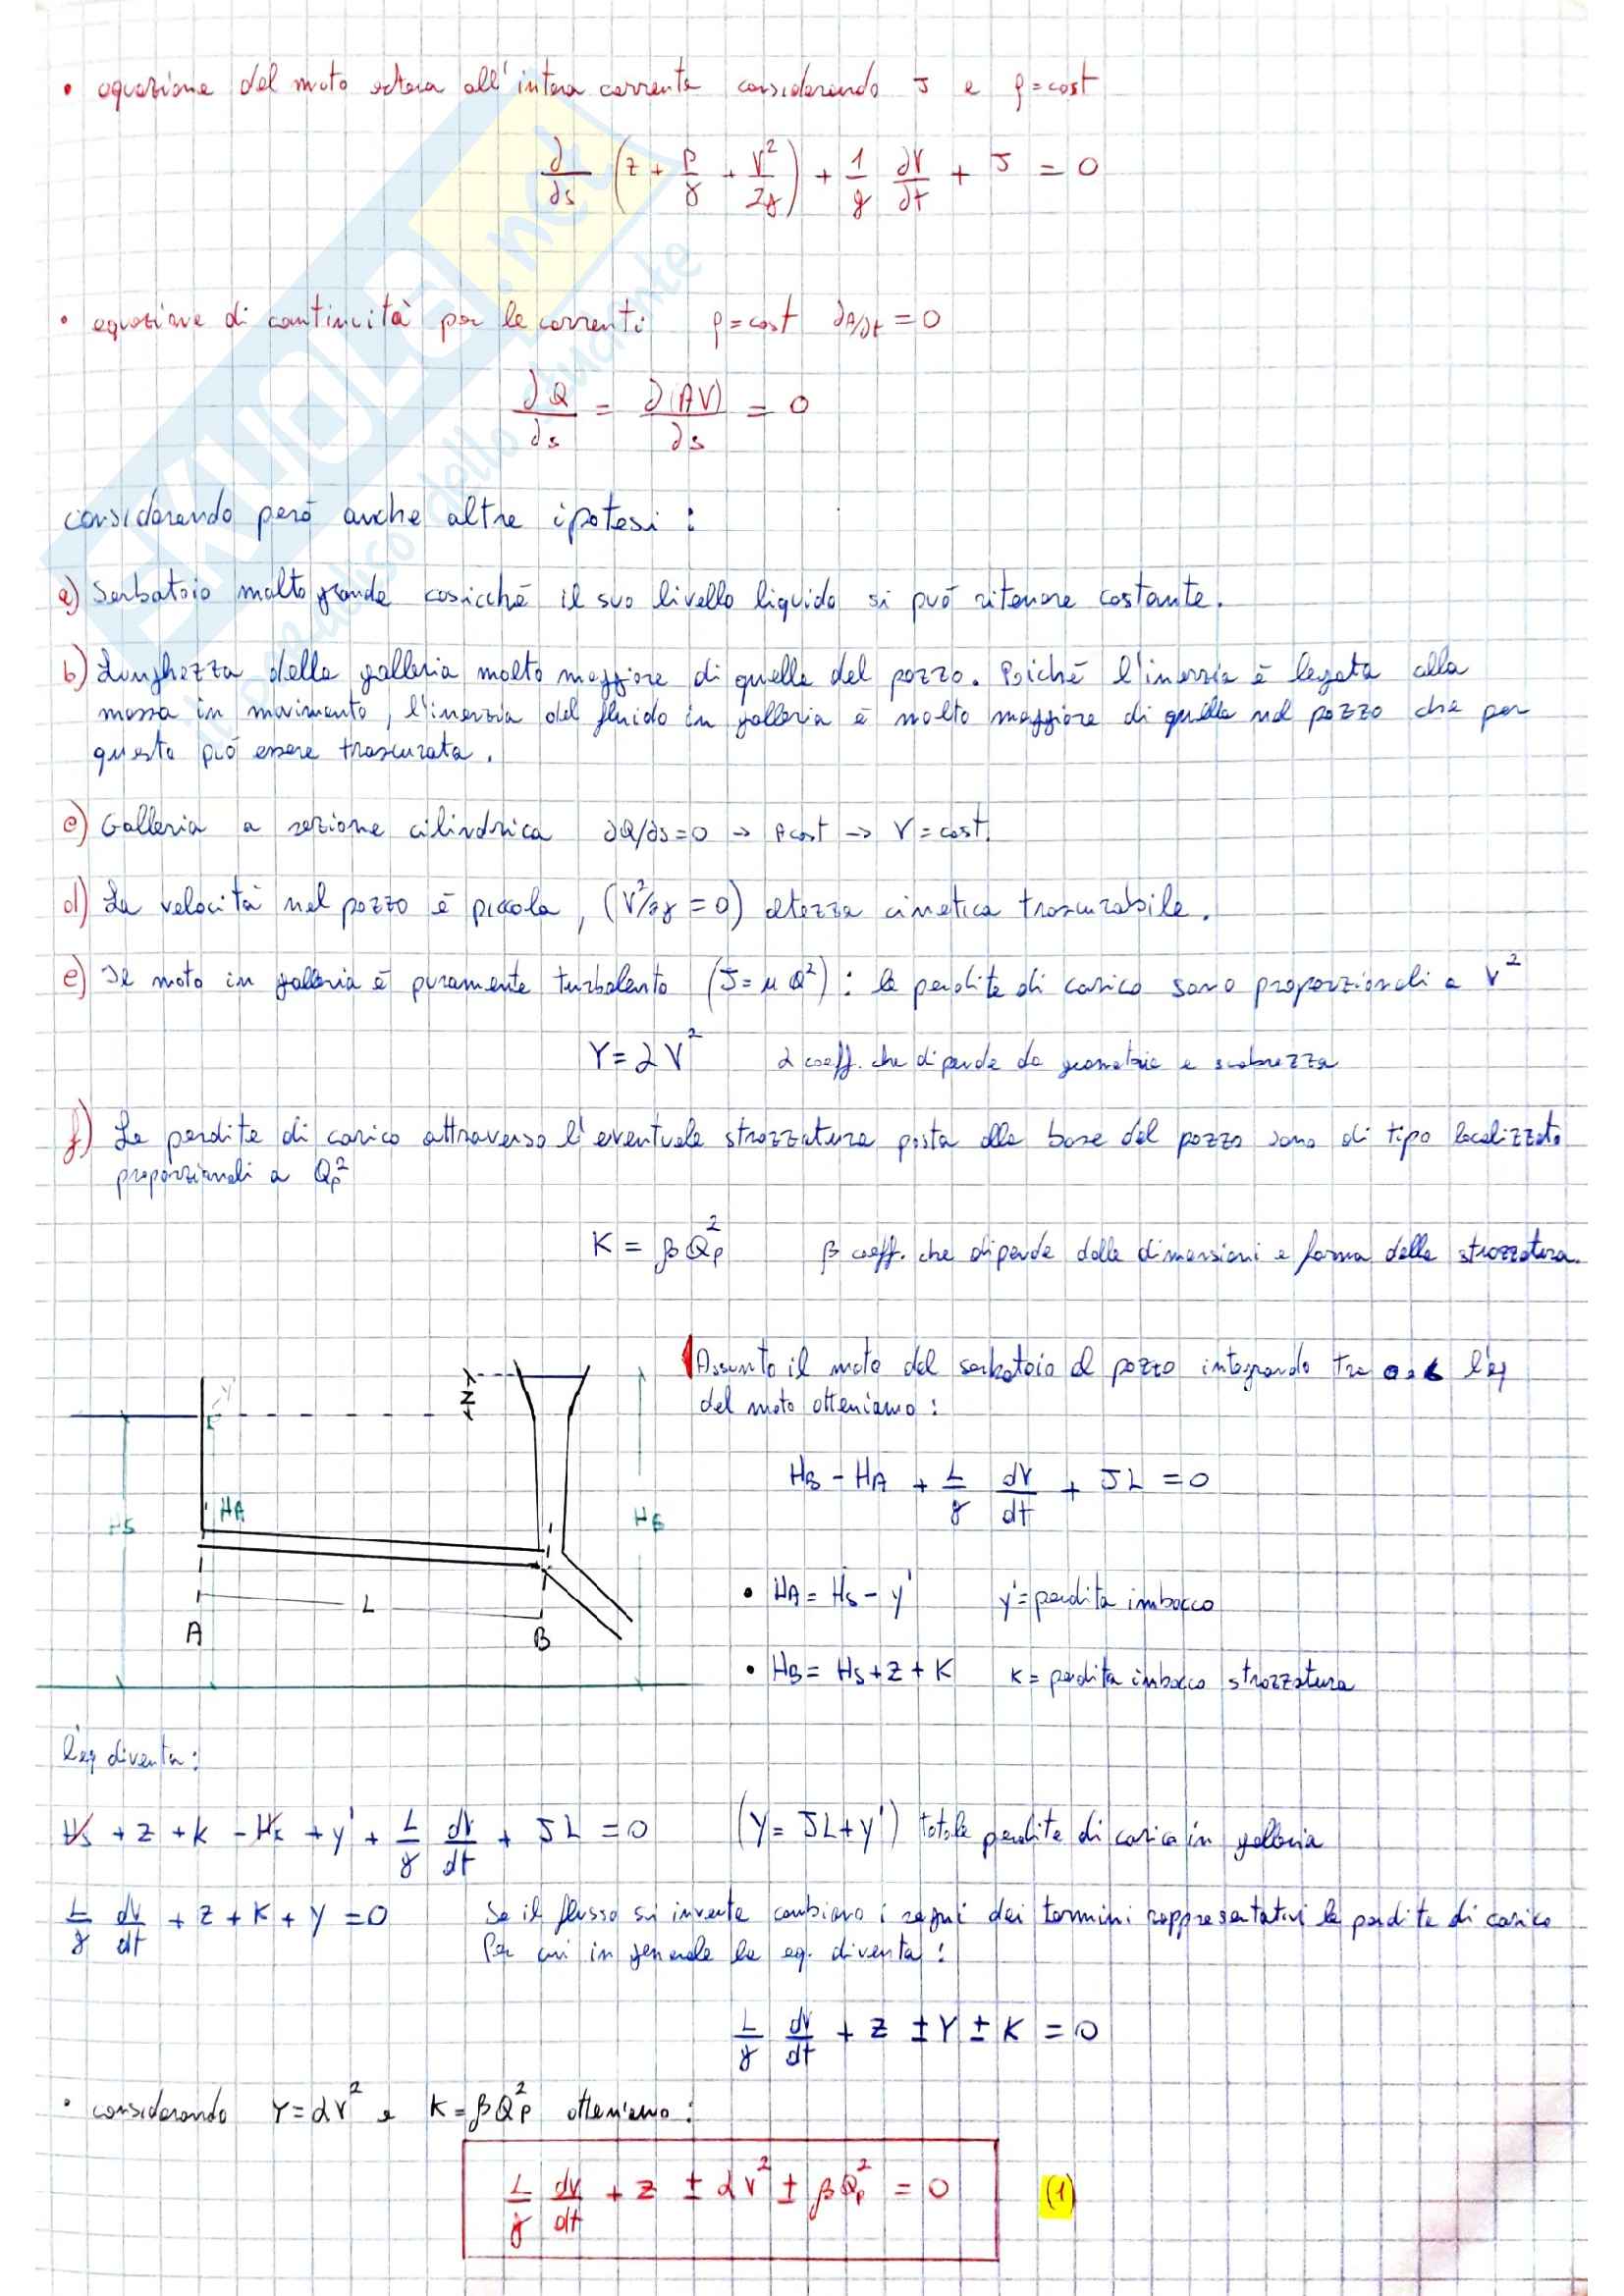 • equazione del moto estesa all'intera corrente considerando J e ρ=cost
∂/∂s (z + p/γ + V²/2g) + 1/g ∂V/∂t + J = 0
• equazione di continuità per le correnti ρ=cost ∂A/∂t = 0
∂Q/∂s = ∂(AV)/∂s = 0
considerando però anche altre ipotesi :
a) Serbatoio molto grande cosicché il suo livello liquido si può ritenere costante.
b) Lunghezza della galleria molto maggiore di quella del pozzo. Poiché l'inerzia è legata alla
massa in movimento, l'inerzia del fluido in galleria è molto maggiore di quella nel pozzo che per
questo può essere trascurata.
c) Galleria a sezione cilindrica ∂Q/∂s=0 → A cost → V=cost.
d) La velocità nel pozzo è piccola, (V²/2g = 0) altezza cinetica trascurabile.
e) Il moto in galleria è puramente turbolento (J= μ Q²) : le perdite di carico sono proporzionali a V²
Y= αV² α coeff. che dipende da geometria e scabrezza
f) Le perdite di carico attraverso l'eventuale strozzatura posta alla base del pozzo sono di tipo localizzato
proporzionali a Qp²
K = βQp² β coeff. che dipende dalle dimensioni e forma della strozzatura.
Assunto il moto dal serbatoio al pozzo integrando tra a e b l'eq
del moto otteniamo :
HB - HA + L/g dV/dt + JL = 0
Z
Hs
HA
HB
L
A
B
• HA = Hs - y' y'= perdita imbocco
• HB = Hs + z + K K = perdita imbocco strozzatura
l'eq diventa :
Hs + z + K - Hs + y' + L/g dV/dt + JL = 0 (Y= JL+y') totale perdite di carico in galleria
L/g dV/dt + z + K + Y = 0 Se il flusso si inverte cambiano i segni dei termini rappresentativi le perdite di carico
Per cui in generale la eq. diventa :
L/g dV/dt + z ± Y ± K = 0
• considerando Y=αV² e K=βQp² otteniamo :
L/g dV/dt + z ± αV² ± βQp² = 0 (1)
SKUOLA.net